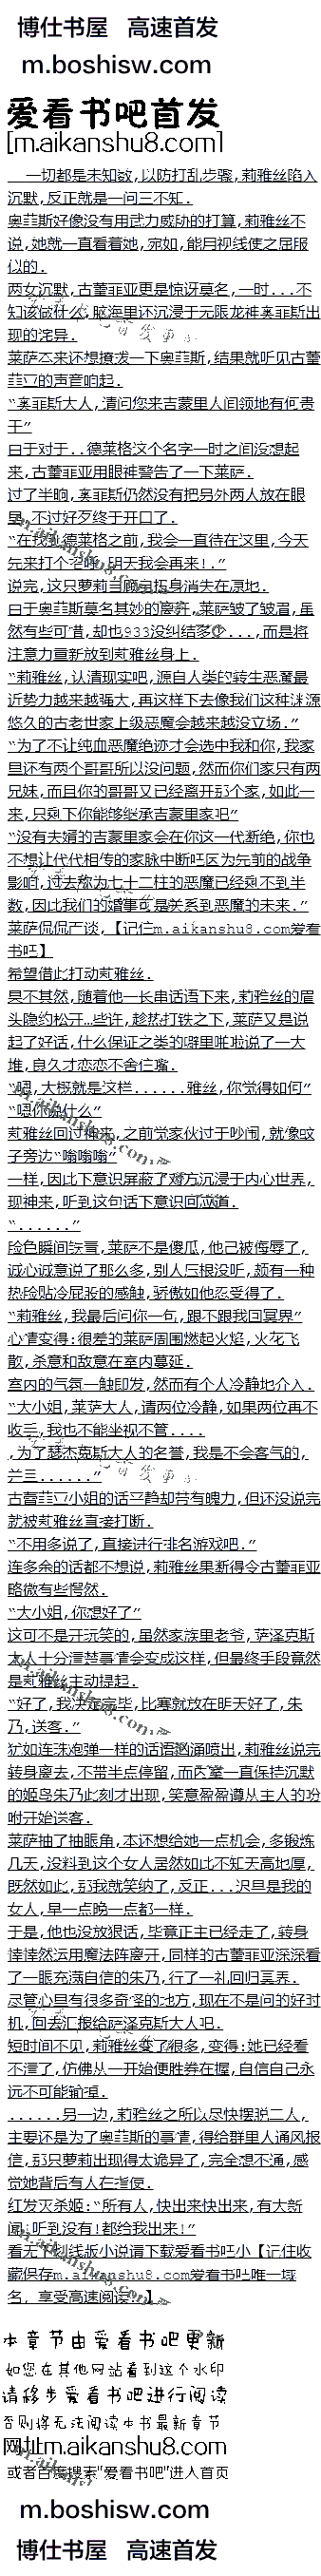 博仕书屋 高速首发
m.boshisw.com
爱看书吧首发
[m.aikanshu8.com]
一切都是未知数,以防打乱步骤,莉雅丝陷入
沉默,反正就是一问三不知.
奥菲斯好像没有用武力威胁的打算,莉雅丝不
说,她就一直看着她,宛如,能用视线使之屈服
似的.
两女沉默,古蕾菲亚更是惊讶莫名,一时...不
知该做什么,脑海里还沉浸于无限龙神奥菲斯出
现的诧异.
莱萨本来还想撩拨一下奥菲斯,结果就听见古蕾
菲亚的声音响起.
“奥菲斯大人,请问您来吉蒙里人间领地有何贵
干”
由于对于..德莱格这个名字一时之间没想起
来,古蕾菲亚用眼神警告了一下莱萨.
过了半晌,奥菲斯仍然没有把另外两人放在眼
里,不过好歹终于开口了.
“在找到德莱格之前,我会一直待在这里,今天
先来打个招呼,明天我会再来!.”
说完,这只萝莉当即转身消失在原地.
由于奥菲斯莫名其妙的离开,莱萨皱了皱眉,虽
然有些可惜,却也933没纠结多少...,而是将
注意力重新放到莉雅丝身上.
“莉雅丝,认清现实吧,源自人类的转生恶魔最
近势力越来越强大,再这样下去像我们这种渊源
悠久的古老世家上级恶魔会越来越没立场.”
“为了不让纯血恶魔绝迹才会选中我和你,我家
里还有两个哥哥所以没问题,然而你们家只有两
兄妹,而且你的哥哥又已经离开那个家,如此一
来,只剩下你能够继承吉蒙里家吧”
“没有夫婿的吉蒙里家会在你这一代断绝,你也
不想让代代相传的家脉中断吧因为先前的战争
影响,过去称为七十二柱的恶魔已经剩不到半
数,因此我们的婚事可是关系到恶魔的未来.”
莱萨侃侃而谈,【记住m.aikanshu8.com爱看
书吧】
希望借此打动莉雅丝.
果不其然,随着他一长串话语下来,莉雅丝的眉
头隐约松开…些许,趁热打铁之下,莱萨又是说
起了好话,什么保证之类的噼里啪啦说了一大
堆,良久才恋恋不舍住嘴.
“嗯,大概就是这样......雅丝,你觉得如何”
“嗯你说什么”
莉雅丝回过神来,之前觉家伙过于吵闹,就像蚊
子旁边“嗡嗡嗡”
一样,因此下意识屏蔽了对方沉浸于内心世界,
现神来,听到这句话下意识回应道.
“......”
脸色瞬间铁青,莱萨不是傻瓜,他己被侮辱了,
诚心诚意说了那么多,别人压根没听,颇有一种
热脸贴冷屁股的感触,骄傲如他忍受得了.
“莉雅丝,我最后问你一句,跟不跟我回冥界”
心情变得:很差的莱萨周围燃起火焰,火花飞
散,杀意和敌意在室内蔓延.
室内的气氛一触即发,然而有个人冷静地介入.
“大小姐,莱萨大人,请两位冷静,如果两位再不
收手,我也不能坐视不管....
,为了瑟杰克斯大人的名誉,我是不会客气的,
兰三......”
古蕾菲亚小姐的话平静却带有魄力,但还没说完
就被莉雅丝直接打断.
“不用多说了,直接进行排名游戏吧.”
连多余的话都不想说,莉雅丝果断得令古蕾菲亚
略微有些愕然.
“大小姐,你想好了”
这可不是开玩笑的,虽然家族里老爷,萨泽克斯
大人十分清楚事情会变成这样,但最终手段竟然
是莉雅丝主动提起.
“好了,我决定完毕,比赛就放在明天好了,朱
乃,送客.”
犹如连珠炮弹一样的话语汹涌喷出,莉雅丝说完
转身离去,不带半点停留,而厌堂一直保持沉默
的姬鸟朱乃此刻才出现,笑意盈盈遵从主人的吩
咐开始送客.
莱萨抽了抽眼角,本还想给她一点机会,多锻炼
几天,没料到这个女人居然如此不知天高地厚,
既然如此,那我就笑纳了,反正...迟早是我的
女人,早一点晚一点都一样.
于是,他也没放狠话,毕竟正主已经走了,转身
悻悻然运用魔法阵离开,同样的古蕾菲亚深深看
了一眼充满自信的朱乃,行了一礼回归冥界.
尽管心里有很多奇怪的地方,现在不是问的好时
机,回去汇报给萨泽克斯大人吧.
短时间不见,莉雅丝变了很多,变得:她已经看
不清了,仿佛从一开始便胜券在握,自信自己永
远不可能输掉.
......另一边,莉雅丝之所以尽快摆脱二人,
主要还是为了奥菲斯的事情,得给群里人通风报
信,那只萝莉出现得太诡异了,完全想不通,感
觉她背后有人在指使.
红发灭杀姬:“所有人,快出来快出来,有大新
闻!听到没有!都给我出来!”
看无广删线版小说请下载爱看书吧小【记住收
藏保存m.aikanshu8.com爱看书吧唯一域
名，享受高速阅读。】
本章节由爱看书吧更新
如您在其他网站看到这个水印
请移步爱看书吧进行阅读
否则将无法阅读本书最新章节
网址m.aikanshu8.com
或者百度搜索"爱看书吧"进入首页
m.boshisw.com
博仕书屋 高速首发